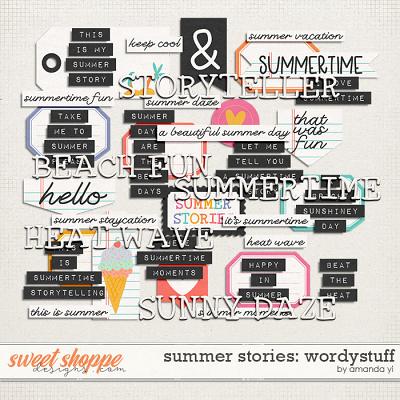 THIS
IS MY
SUMMER
STORY
keep cool
&
summer vacation
SUMMERTIME
LOVE
SUMMERTIME
STORYTELLER
summertime fun
summer daze
TAKE
ME TO
SUMMER
SUMMER
DAYS
ARE
THE
BEST
DAYS
a beautiful summer day
LET ME
TELL YOU
A SUMMERTIME
that
was
fun
BEACH FUN
SUMMERTIME
hello
SUMMER
STORIES
it's summertime
SUNSHINEY
DAY
summer staycation
HEAT WAVE
heat wave
IS
SUMMERTIME
STORYTELLING
SUMMERTIME
MOMENTS
HAPPY
IN
SUMMER
BEAT
THE
HEAT
this is summer
summer memories
SUNNY DAZE
sweet shoppe
designs.com
summer stories: wordystuff
by amanda yi